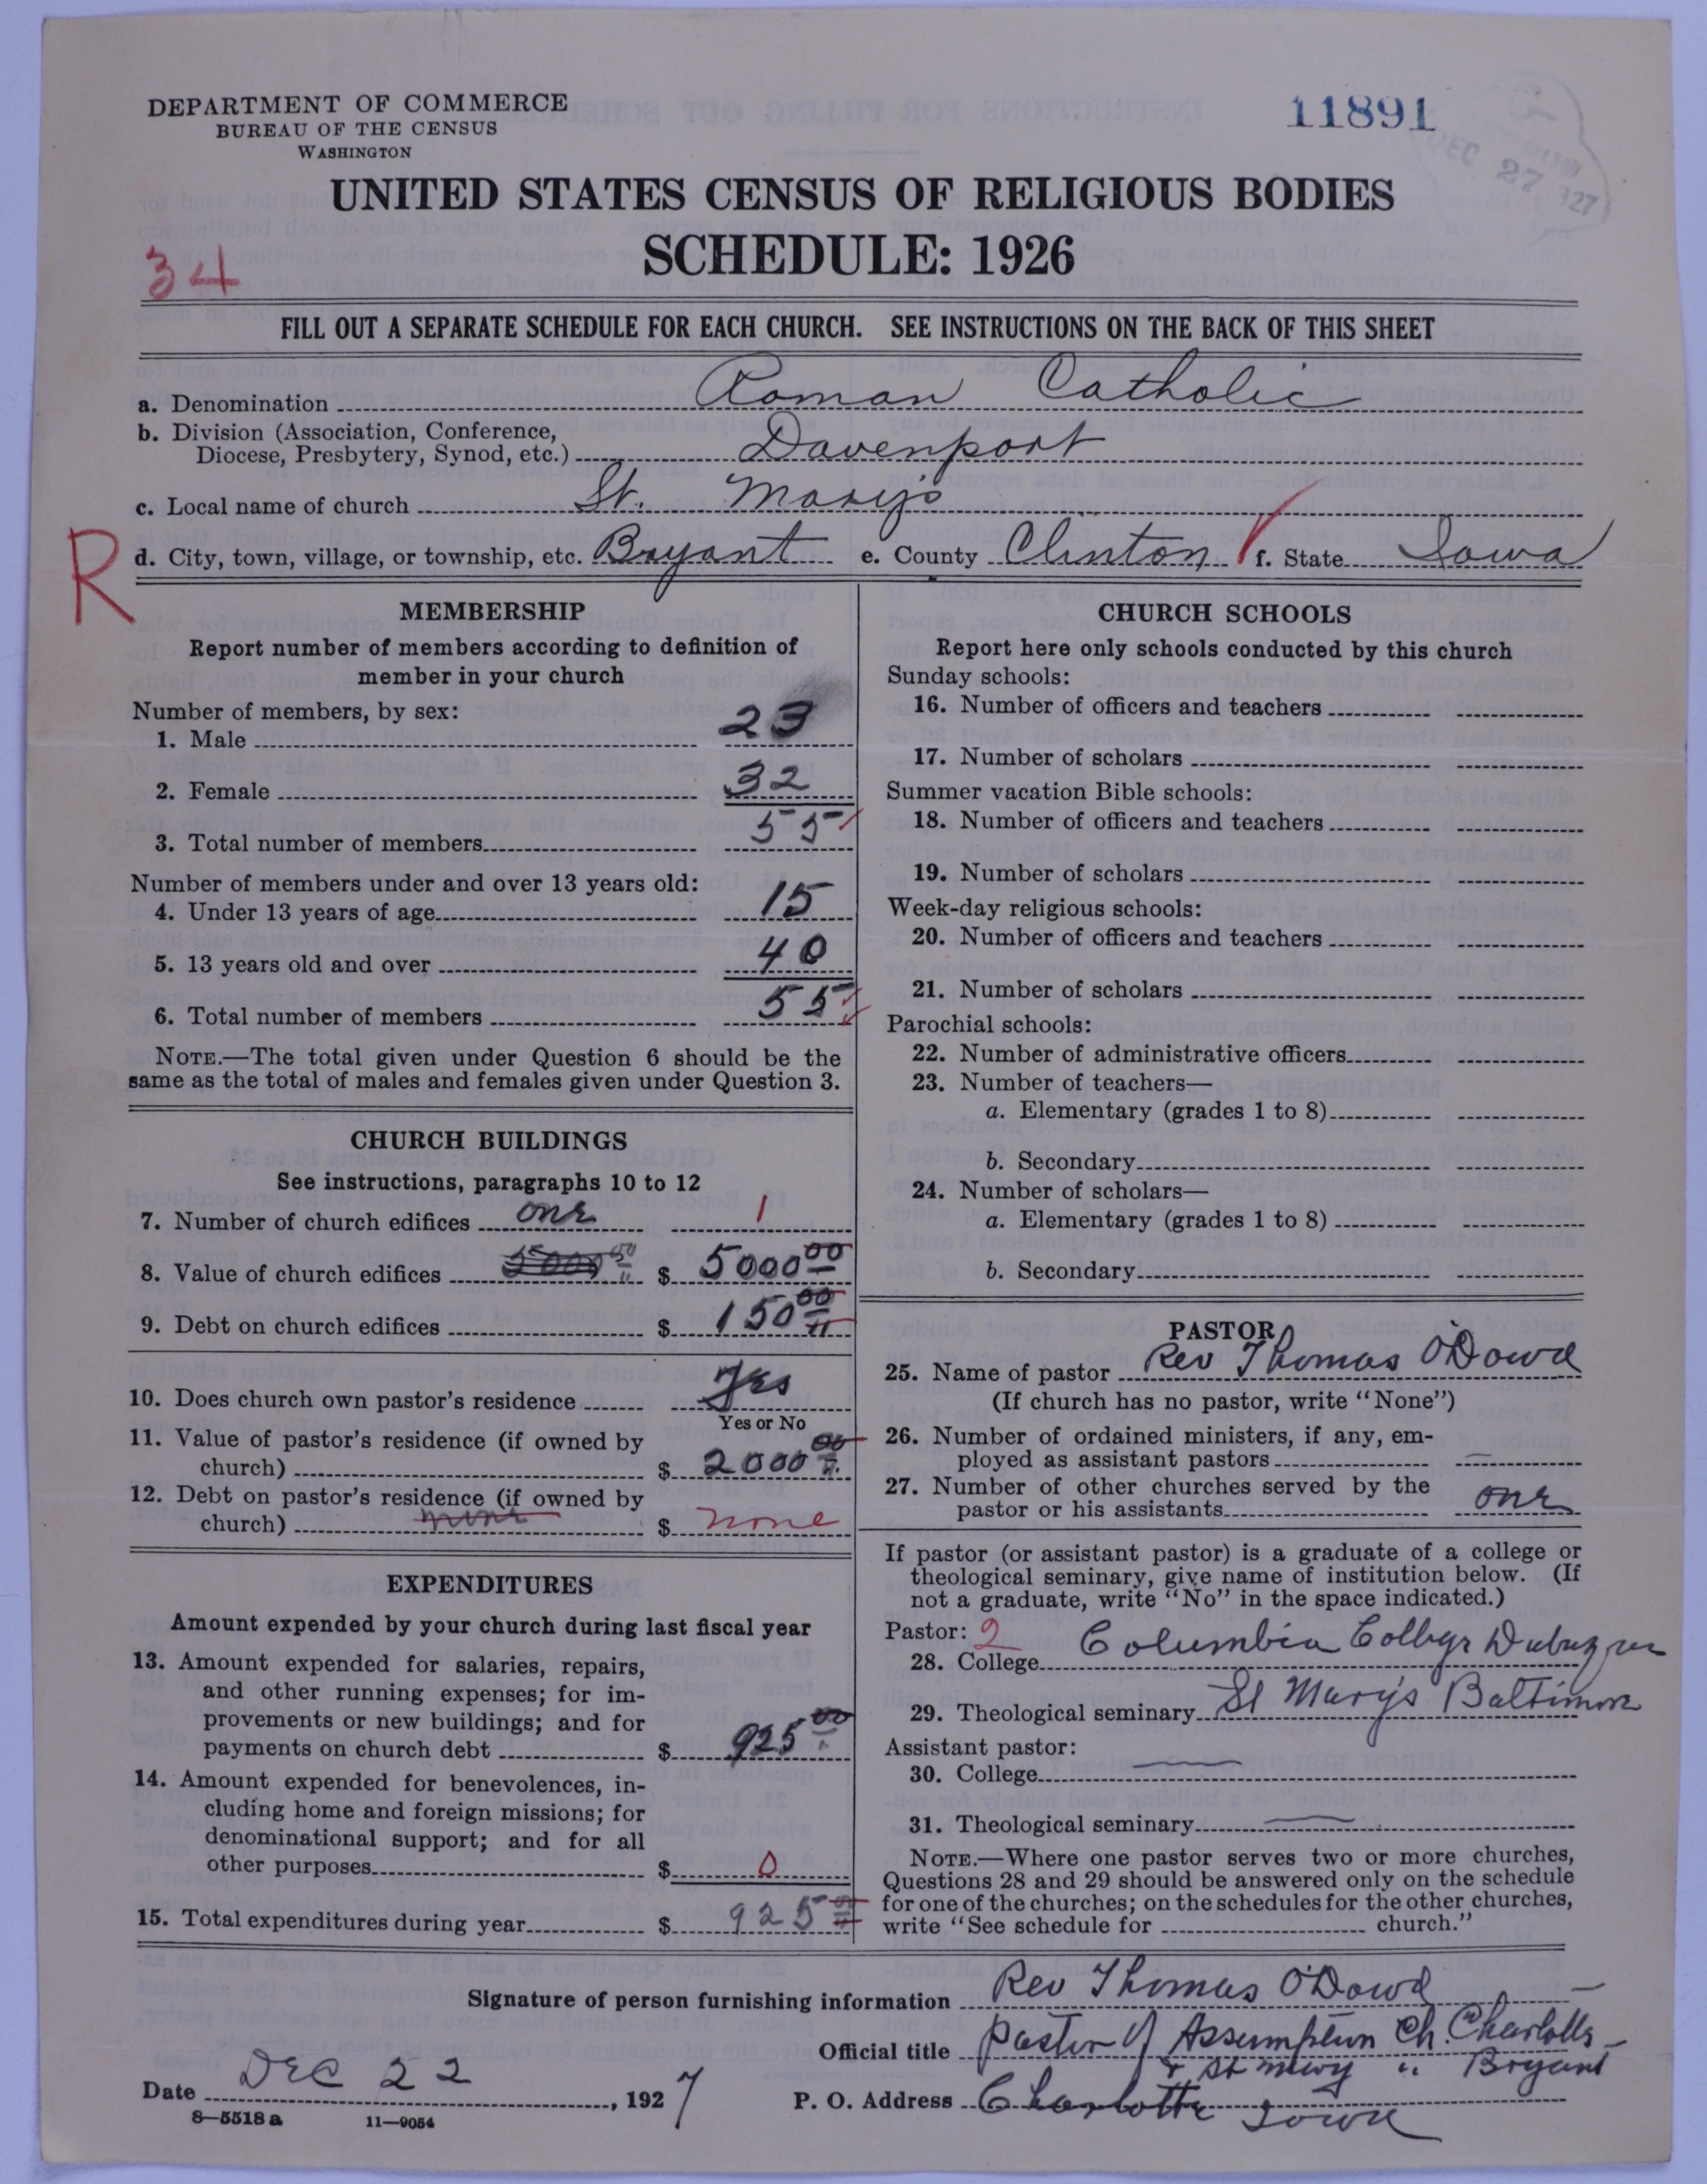 DEPARTMENT OF COMMERCE
BUREAU OF THE CENSUS
WASHINGTON
11891
DEC 27 1927
UNITED STATES CENSUS OF RELIGIOUS BODIES
SCHEDULE: 1926
34
FILL OUT A SEPARATE SCHEDULE FOR EACH CHURCH. SEE INSTRUCTIONS ON THE BACK OF THIS SHEET
a. Denomination Roman Catholic
b. Division (Association, Conference,
Diocese, Presbytery, Synod, etc.) Davenport
c. Local name of church St. Mary's
R
d. City, town, village, or township, etc. Bryant e. County Clinton f. State Iowa
MEMBERSHIP
Report number of members according to definition of
member in your church
Number of members, by sex:
1. Male 23
2. Female 32
3. Total number of members 55
Number of members under and over 13 years old:
4. Under 13 years of age 15
5. 13 years old and over 40
6. Total number of members 55
NOTE.—The total given under Question 6 should be the
same as the total of males and females given under Question 3.
CHURCH BUILDINGS
See instructions, paragraphs 10 to 12
7. Number of church edifices one 1
8. Value of church edifices 5000 00 $ 5000 00
9. Debt on church edifices $ 150 00
10. Does church own pastor's residence Yes
Yes or No
11. Value of pastor's residence (if owned by
church) $ 2000 00
12. Debt on pastor's residence (if owned by
church) none $ none
EXPENDITURES
Amount expended by your church during last fiscal year
13. Amount expended for salaries, repairs,
and other running expenses; for im-
provements or new buildings; and for
payments on church debt $ 925 00
14. Amount expended for benevolences, in-
cluding home and foreign missions; for
denominational support; and for all
other purposes $ 0
15. Total expenditures during year $ 925 00
CHURCH SCHOOLS
Report here only schools conducted by this church
Sunday schools:
16. Number of officers and teachers
17. Number of scholars
Summer vacation Bible schools:
18. Number of officers and teachers
19. Number of scholars
Week-day religious schools:
20. Number of officers and teachers
21. Number of scholars
Parochial schools:
22. Number of administrative officers
23. Number of teachers—
a. Elementary (grades 1 to 8)
b. Secondary
24. Number of scholars—
a. Elementary (grades 1 to 8)
b. Secondary
PASTOR
25. Name of pastor Rev Thomas O'Dowd
(If church has no pastor, write "None")
26. Number of ordained ministers, if any, em-
ployed as assistant pastors —
27. Number of other churches served by the
pastor or his assistants one
If pastor (or assistant pastor) is a graduate of a college or
theological seminary, give name of institution below. (If
not a graduate, write "No" in the space indicated.)
Pastor: 2
28. College Columbia College Dubuque
29. Theological seminary St Mary's Baltimore
Assistant pastor:
30. College —
31. Theological seminary —
NOTE.—Where one pastor serves two or more churches,
Questions 28 and 29 should be answered only on the schedule
for one of the churches; on the schedules for the other churches,
write "See schedule for church."
Signature of person furnishing information Rev Thomas O'Dowd
Official title Pastor of Assumption Ch. Charlotte
& St Mary " Bryant
Date Dec 22, 1927 P. O. Address Charlotte Iowa
8—5518 a 11—9054